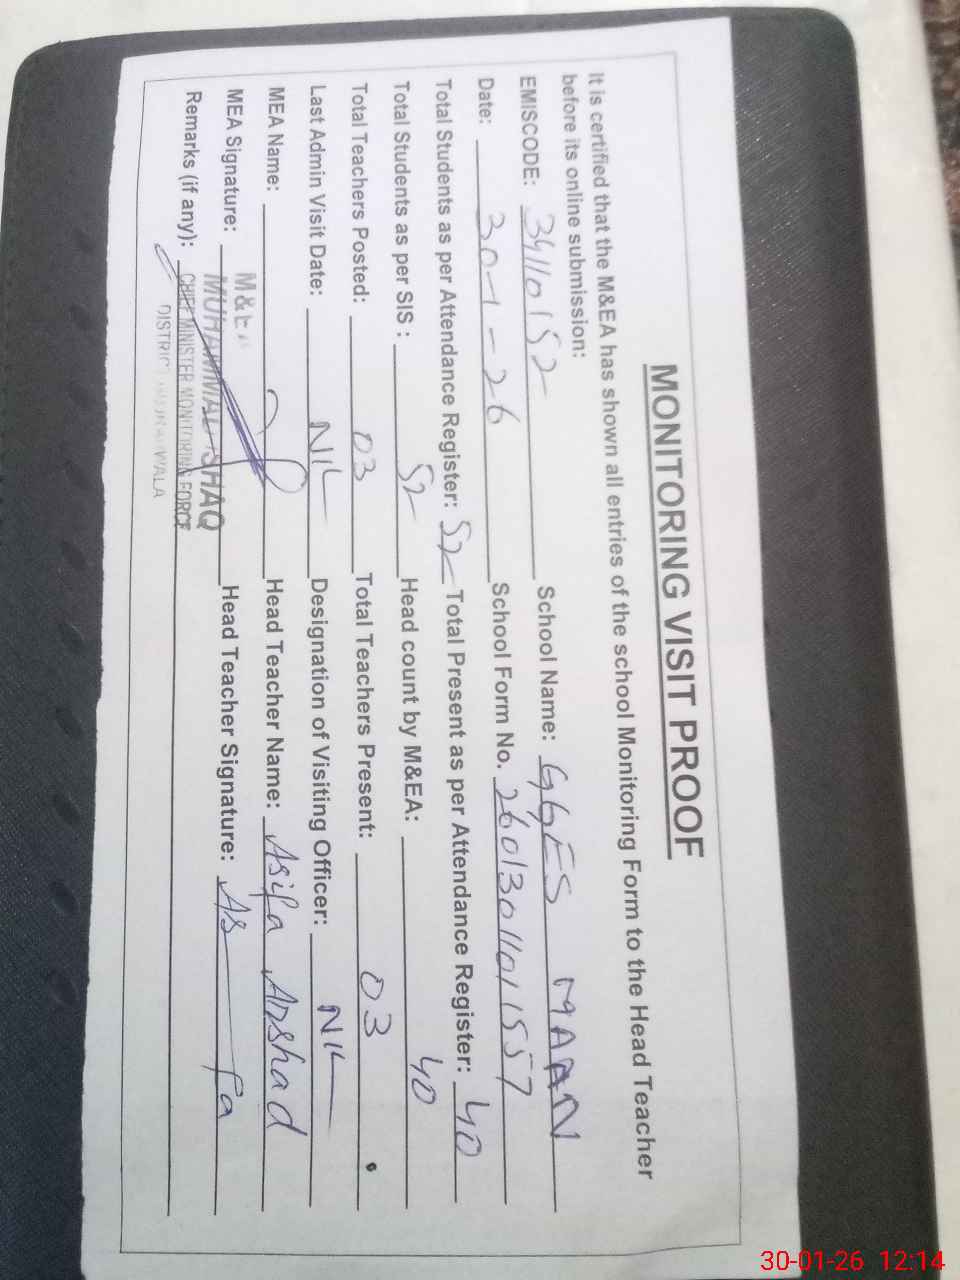 MONITORING VISIT PROOF
It is certified that the M&EA has shown all entries of the school Monitoring Form to the Head Teacher
before its online submission:
EMISCODE: 34110152 School Name: GGES MAAN
Date: 30-1-26 School Form No. 26013011011557
Total Students as per Attendance Register: 52 Total Present as per Attendance Register: 40
Total Students as per SIS : 52 Head count by M&EA: 40
Total Teachers Posted: 03 Total Teachers Present: 03
Last Admin Visit Date: NIL Designation of Visiting Officer: NIL
MEA Name: Head Teacher Name: Asifa Arshad
MEA Signature: Head Teacher Signature: Asifa
Remarks (if any):
MUHAMMAD ISHAQ
CHIEF MINISTER MONITORING FORCE
DISTRICT GUJRANWALA
30-01-26 12:14